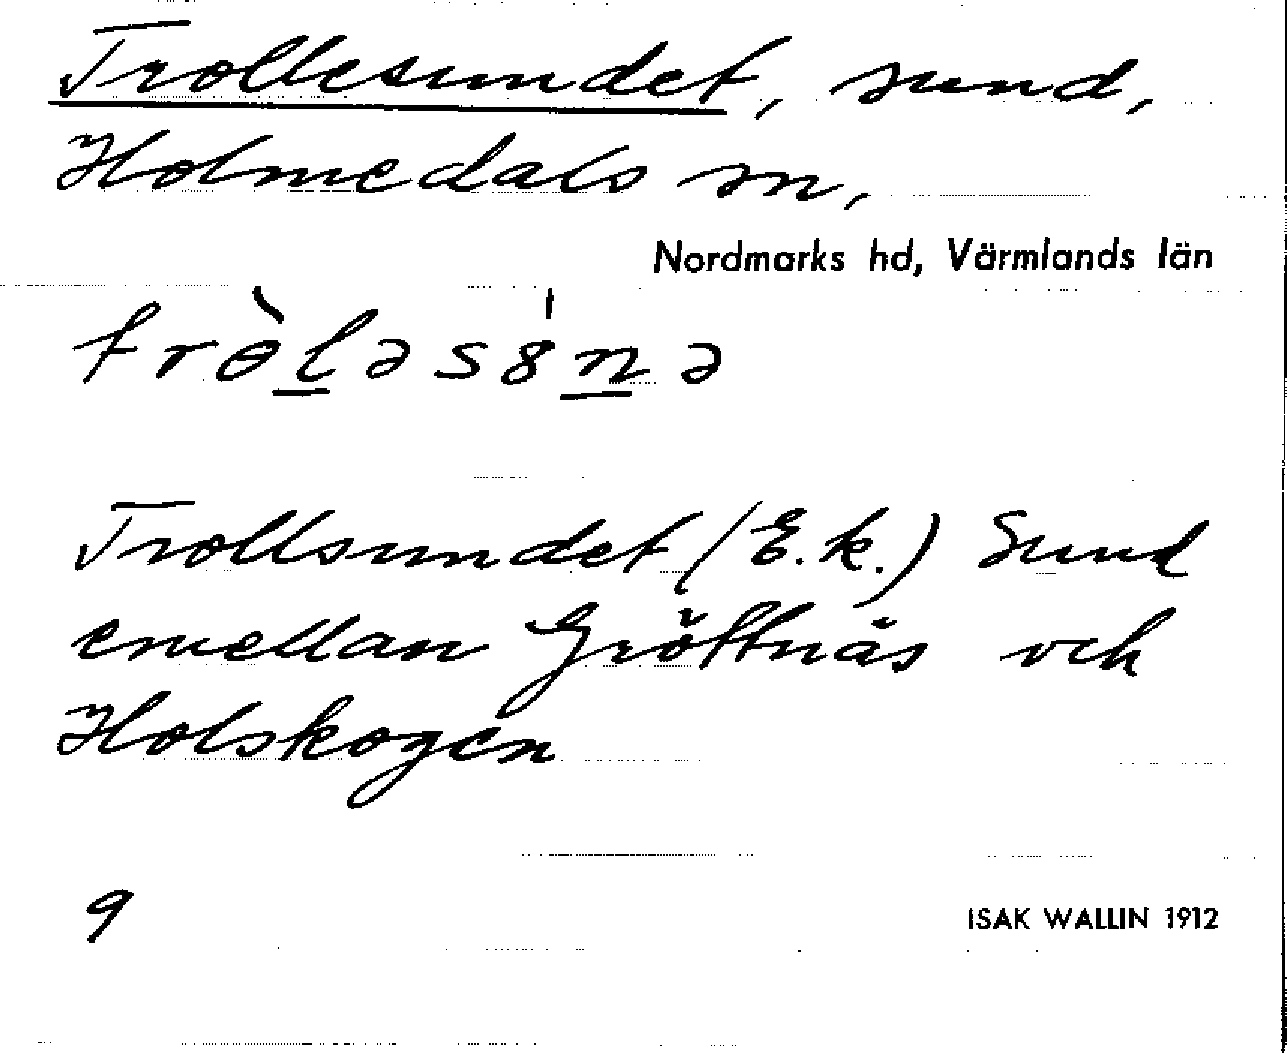 Trollesundet, sund,
Holmedals sn,
Nordmarks hd, Värmlands län
trɵ̀ləs8́nə
Trollsundet (E.k.) Sund
emellan Gröttnäs och
Holskogen
9 ISAK WALLIN 1912